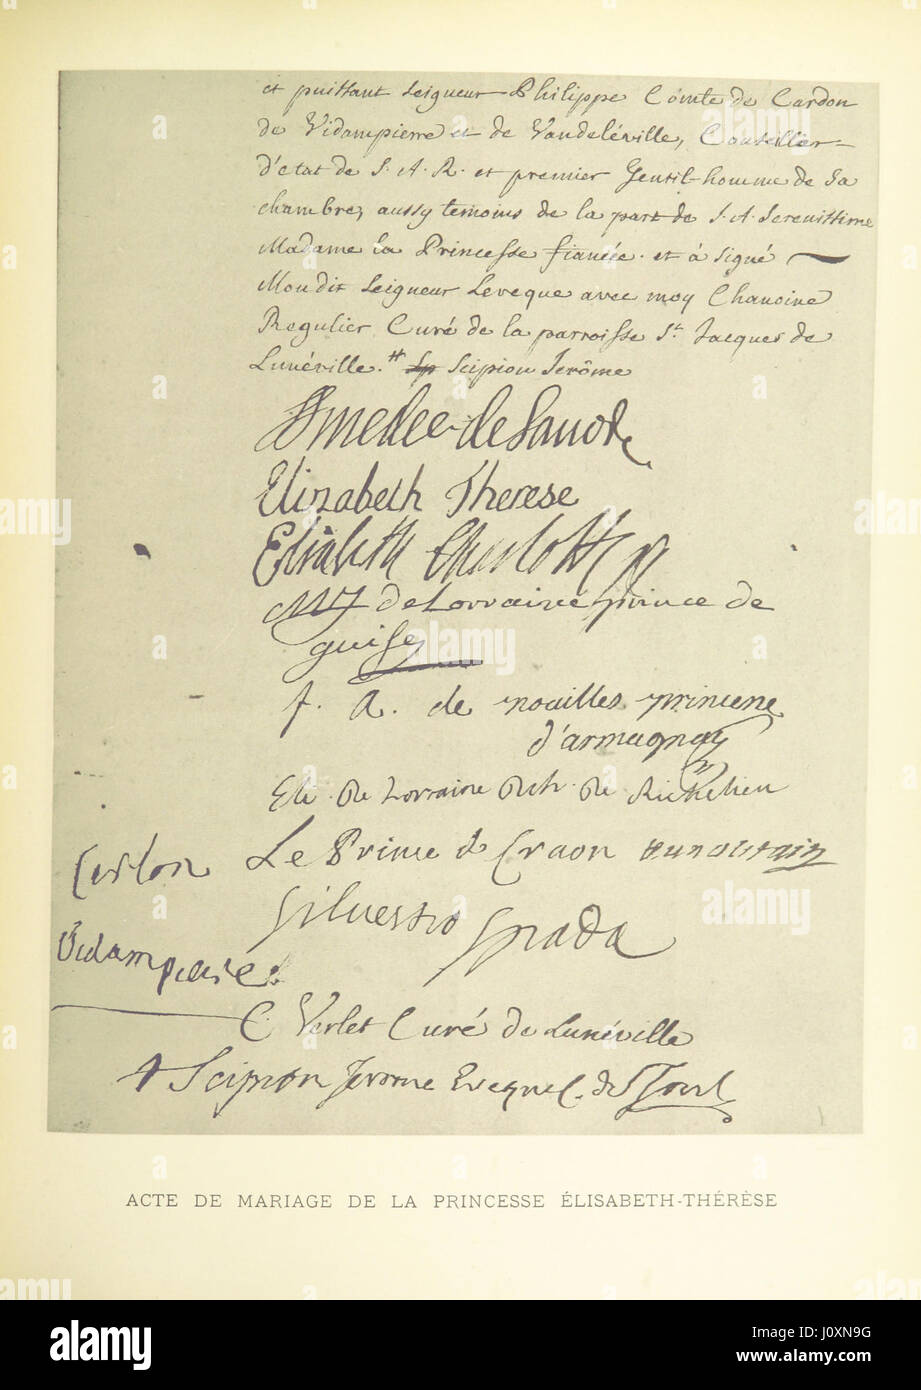 et puissant Seigneur Philippe Comte de Cardon
de Vidampierre et de Vandeléville, Conseiller
d'état de S. A. R. et premier Gentil-homme de Sa
chambre, aussy temoins de la part de S. A. Serenissime
Madame la Princesse fiancée. et à signé
Mondit Seigneur Leveque avec moy Chanoine
Regulier Curé de la parroisse St. Jacques de
Lunéville. Scipion Jerôme
Elizabeth Therese
Elisabeth Charlotte
de Lorraine prince de
guise
f. A. de noailles princene
d'armagnac
Eli. de Lorraine Duch. de Richelieu
Le Prince de Craon
Cardon
Silvestro Spada
Vidampierre
C. Verlet Curé de Lunéville
Scipion Jerome Eveque C. de Toul
ACTE DE MARIAGE DE LA PRINCESSE ÉLISABETH-THÉRÈSE
alamy
Image ID: J0XN9G
www.alamy.com